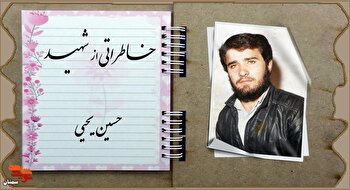 خاطراتی از شهید
حسین یحیی
سمنان